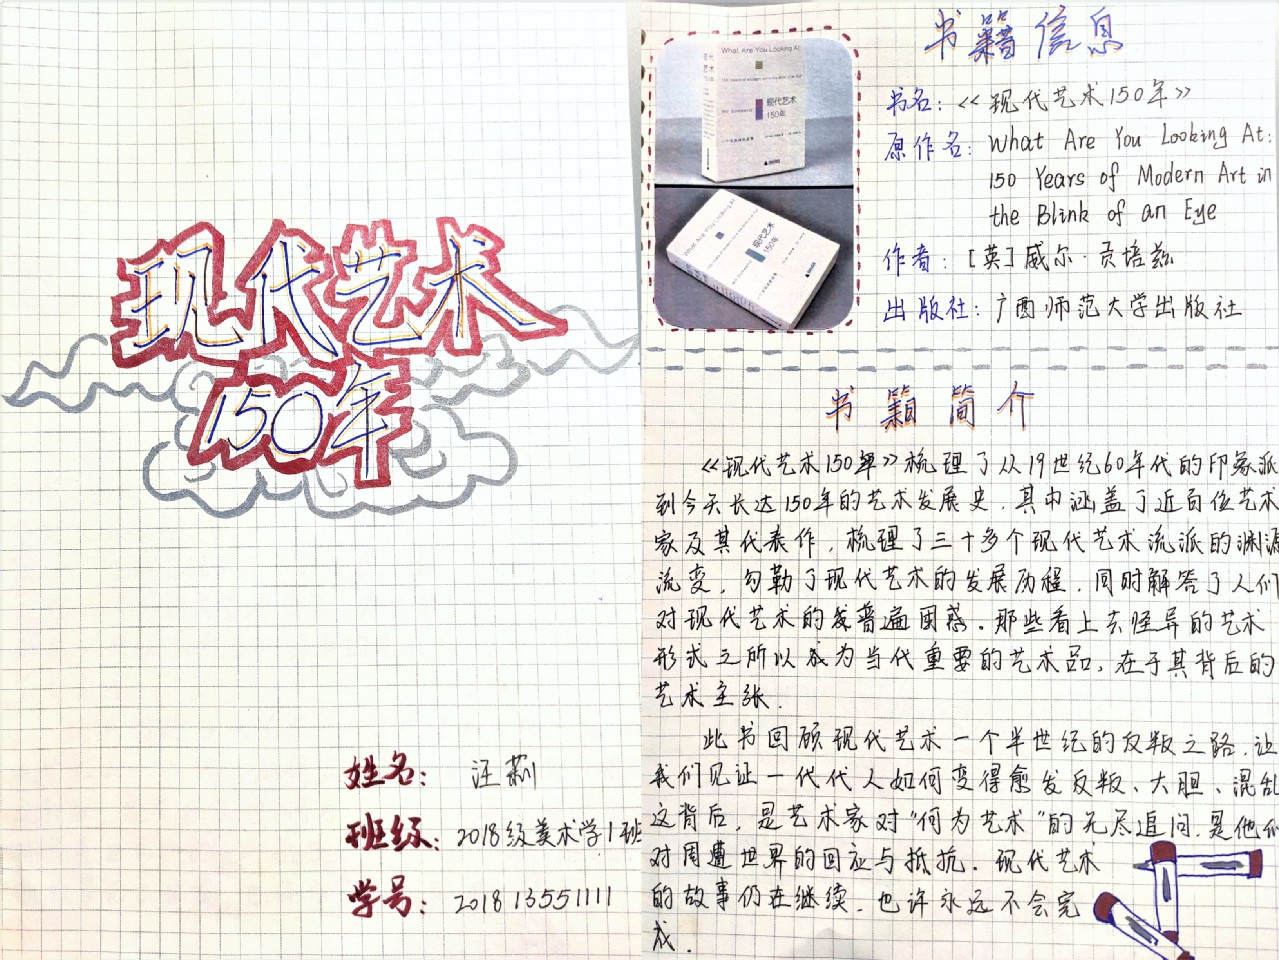 现代艺术
150年
姓名: 汪莉
班级: 2018级美术学1班
学号: 201813551111
What Are You Looking At
现代艺术
150年
What Are You Looking At
现代艺术
150年
书籍信息
书名:《现代艺术150年》
原作名: What Are You Looking At:
150 Years of Modern Art in
the Blink of an Eye
作者: [英] 威尔·贡培兹
出版社: 广西师范大学出版社
书籍简介
《现代艺术150年》梳理了从19世纪60年代的印象派
到今天长达150年的艺术发展史,其中涵盖了近百位艺术
家及其代表作,梳理了三十多个现代艺术流派的渊源
流变,勾勒了现代艺术的发展历程,同时解答了人们
对现代艺术的普遍困惑。那些看上去怪异的艺术
形式之所以成为当代重要的艺术品,在于其背后的
艺术主张.
此书回顾现代艺术一个半世纪的反叛之路,让
我们见证一代代人如何变得愈发反叛、大胆、混乱
这背后,是艺术家对"何为艺术"的无尽追问,是他们
对周遭世界的回应与抵抗.现代艺术
的故事仍在继续,也许永远不会完
成.